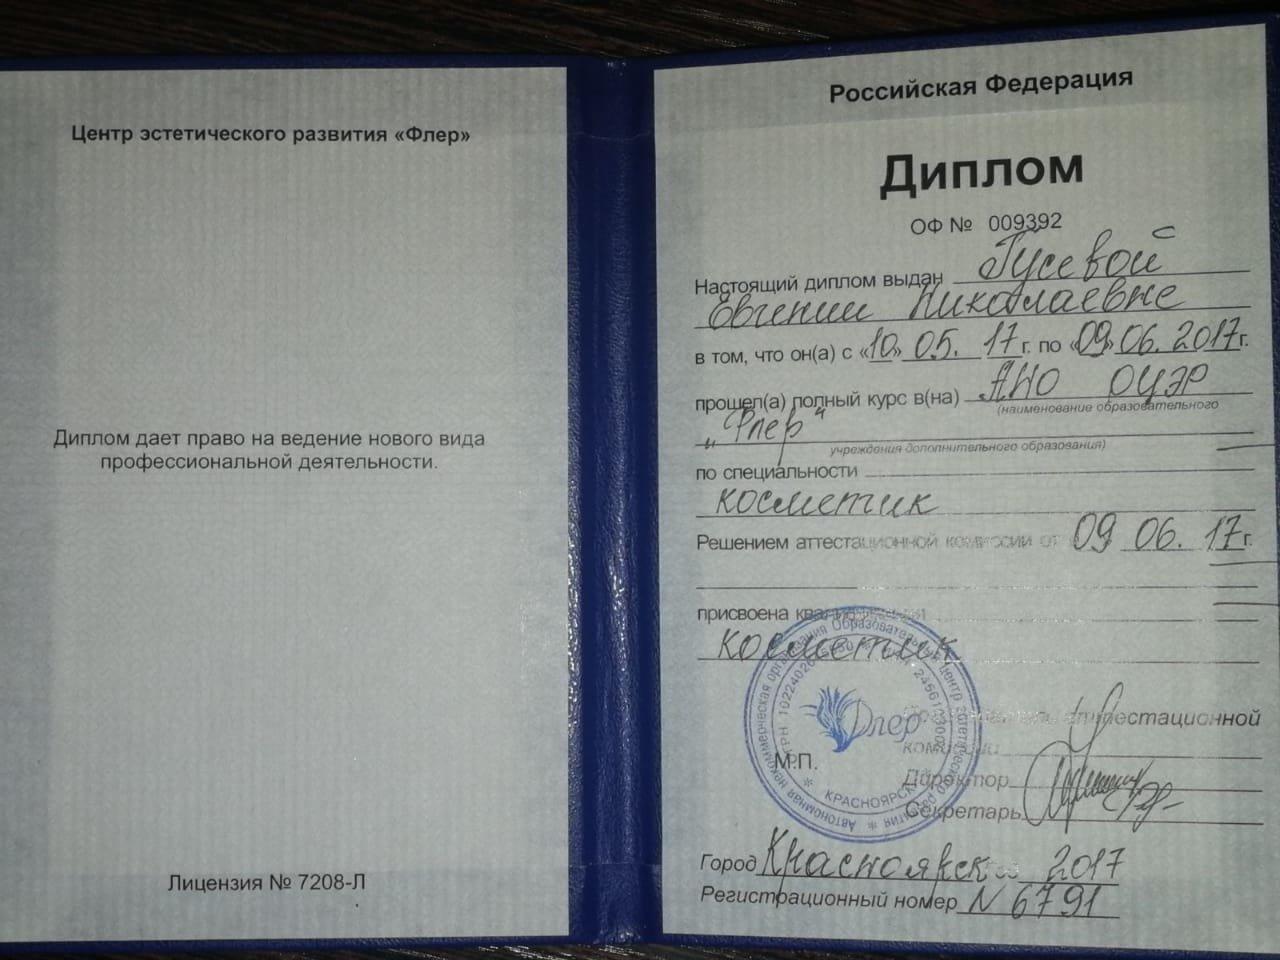 Центр эстетического развития «Флер»
Диплом дает право на ведение нового вида
профессиональной деятельности.
Лицензия № 7208-Л
Российская Федерация
Диплом
ОФ № 009392
Настоящий диплом выдан Гусевой
Евгении Николаевне
в том, что он(а) с «10» 05. 17 г. по «09» 06. 2017 г.
прошел(а) полный курс в(на) АНО ОЦЭР
(наименование образовательного
„Флер“
учреждения дополнительного образования)
по специальности
косметик
Решением аттестационной комиссии от 09 06. 17 г.
присвоена квалификация
косметик
Автономная некоммерческая организация Образовательный центр эстетического развития
КРАСНОЯРСК
Флер
аттестационной
комиссии
М.П.
Директор
Секретарь
Город Красноярск 2017
Регистрационный номер N 6791